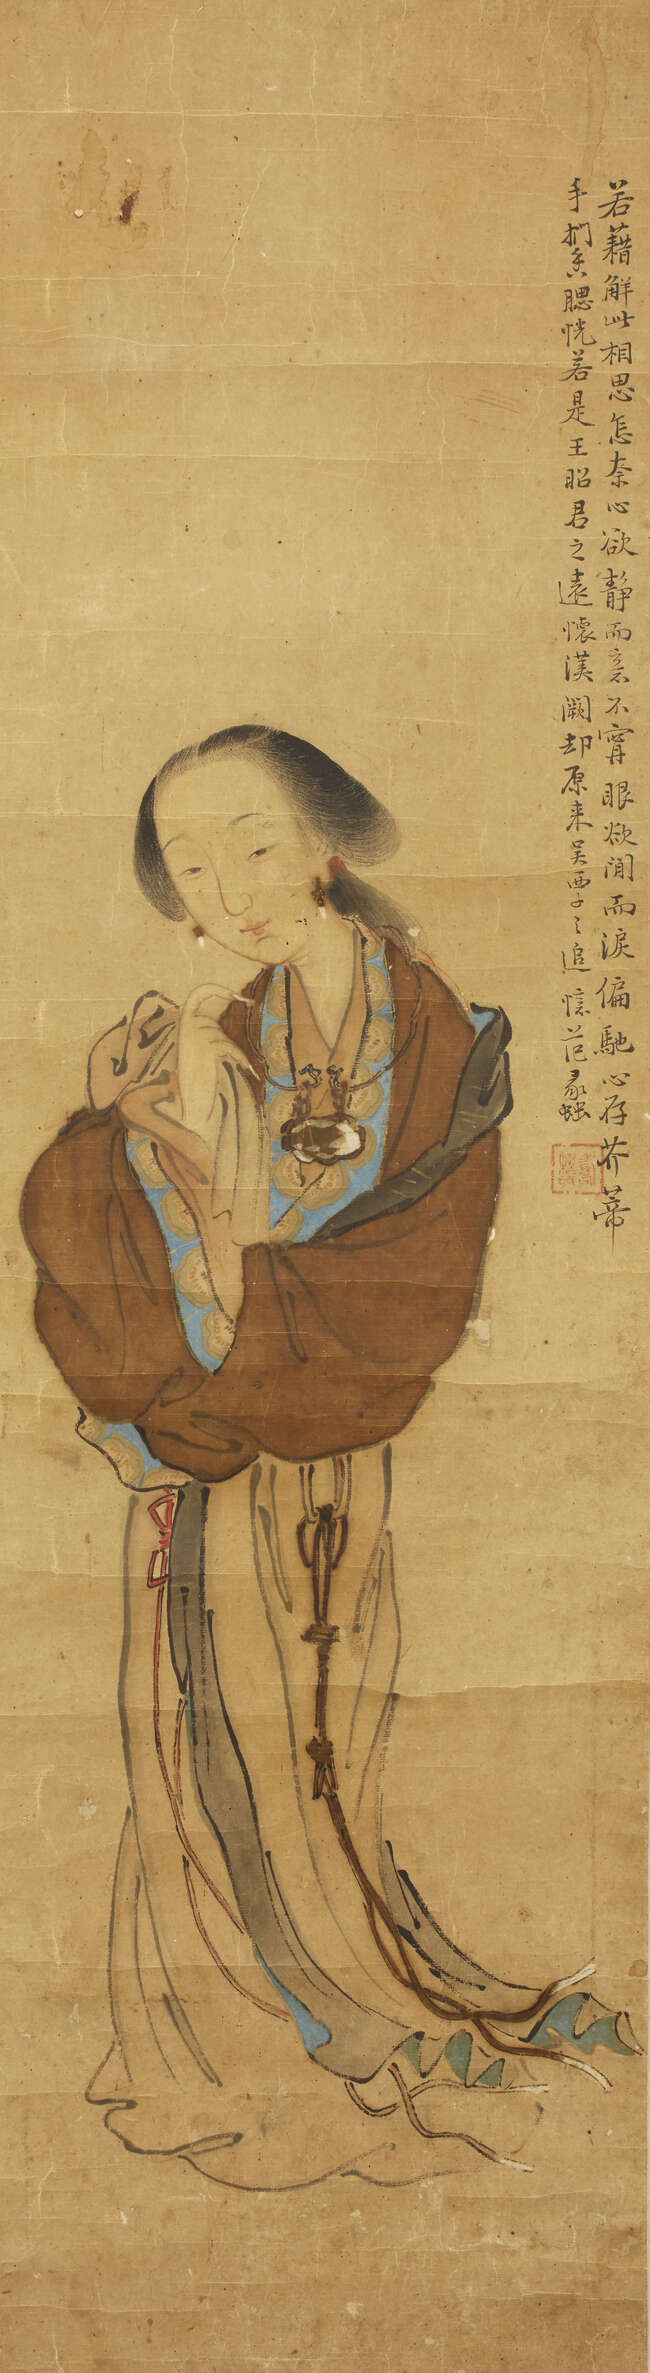 若藉解此相思怎奈心欲静而意不寧眼欲閉而淚偏馳心存芥蒂
手捫香腮恍若是王昭君之遠懷漢闕却原来吴西子之追憶范蠡